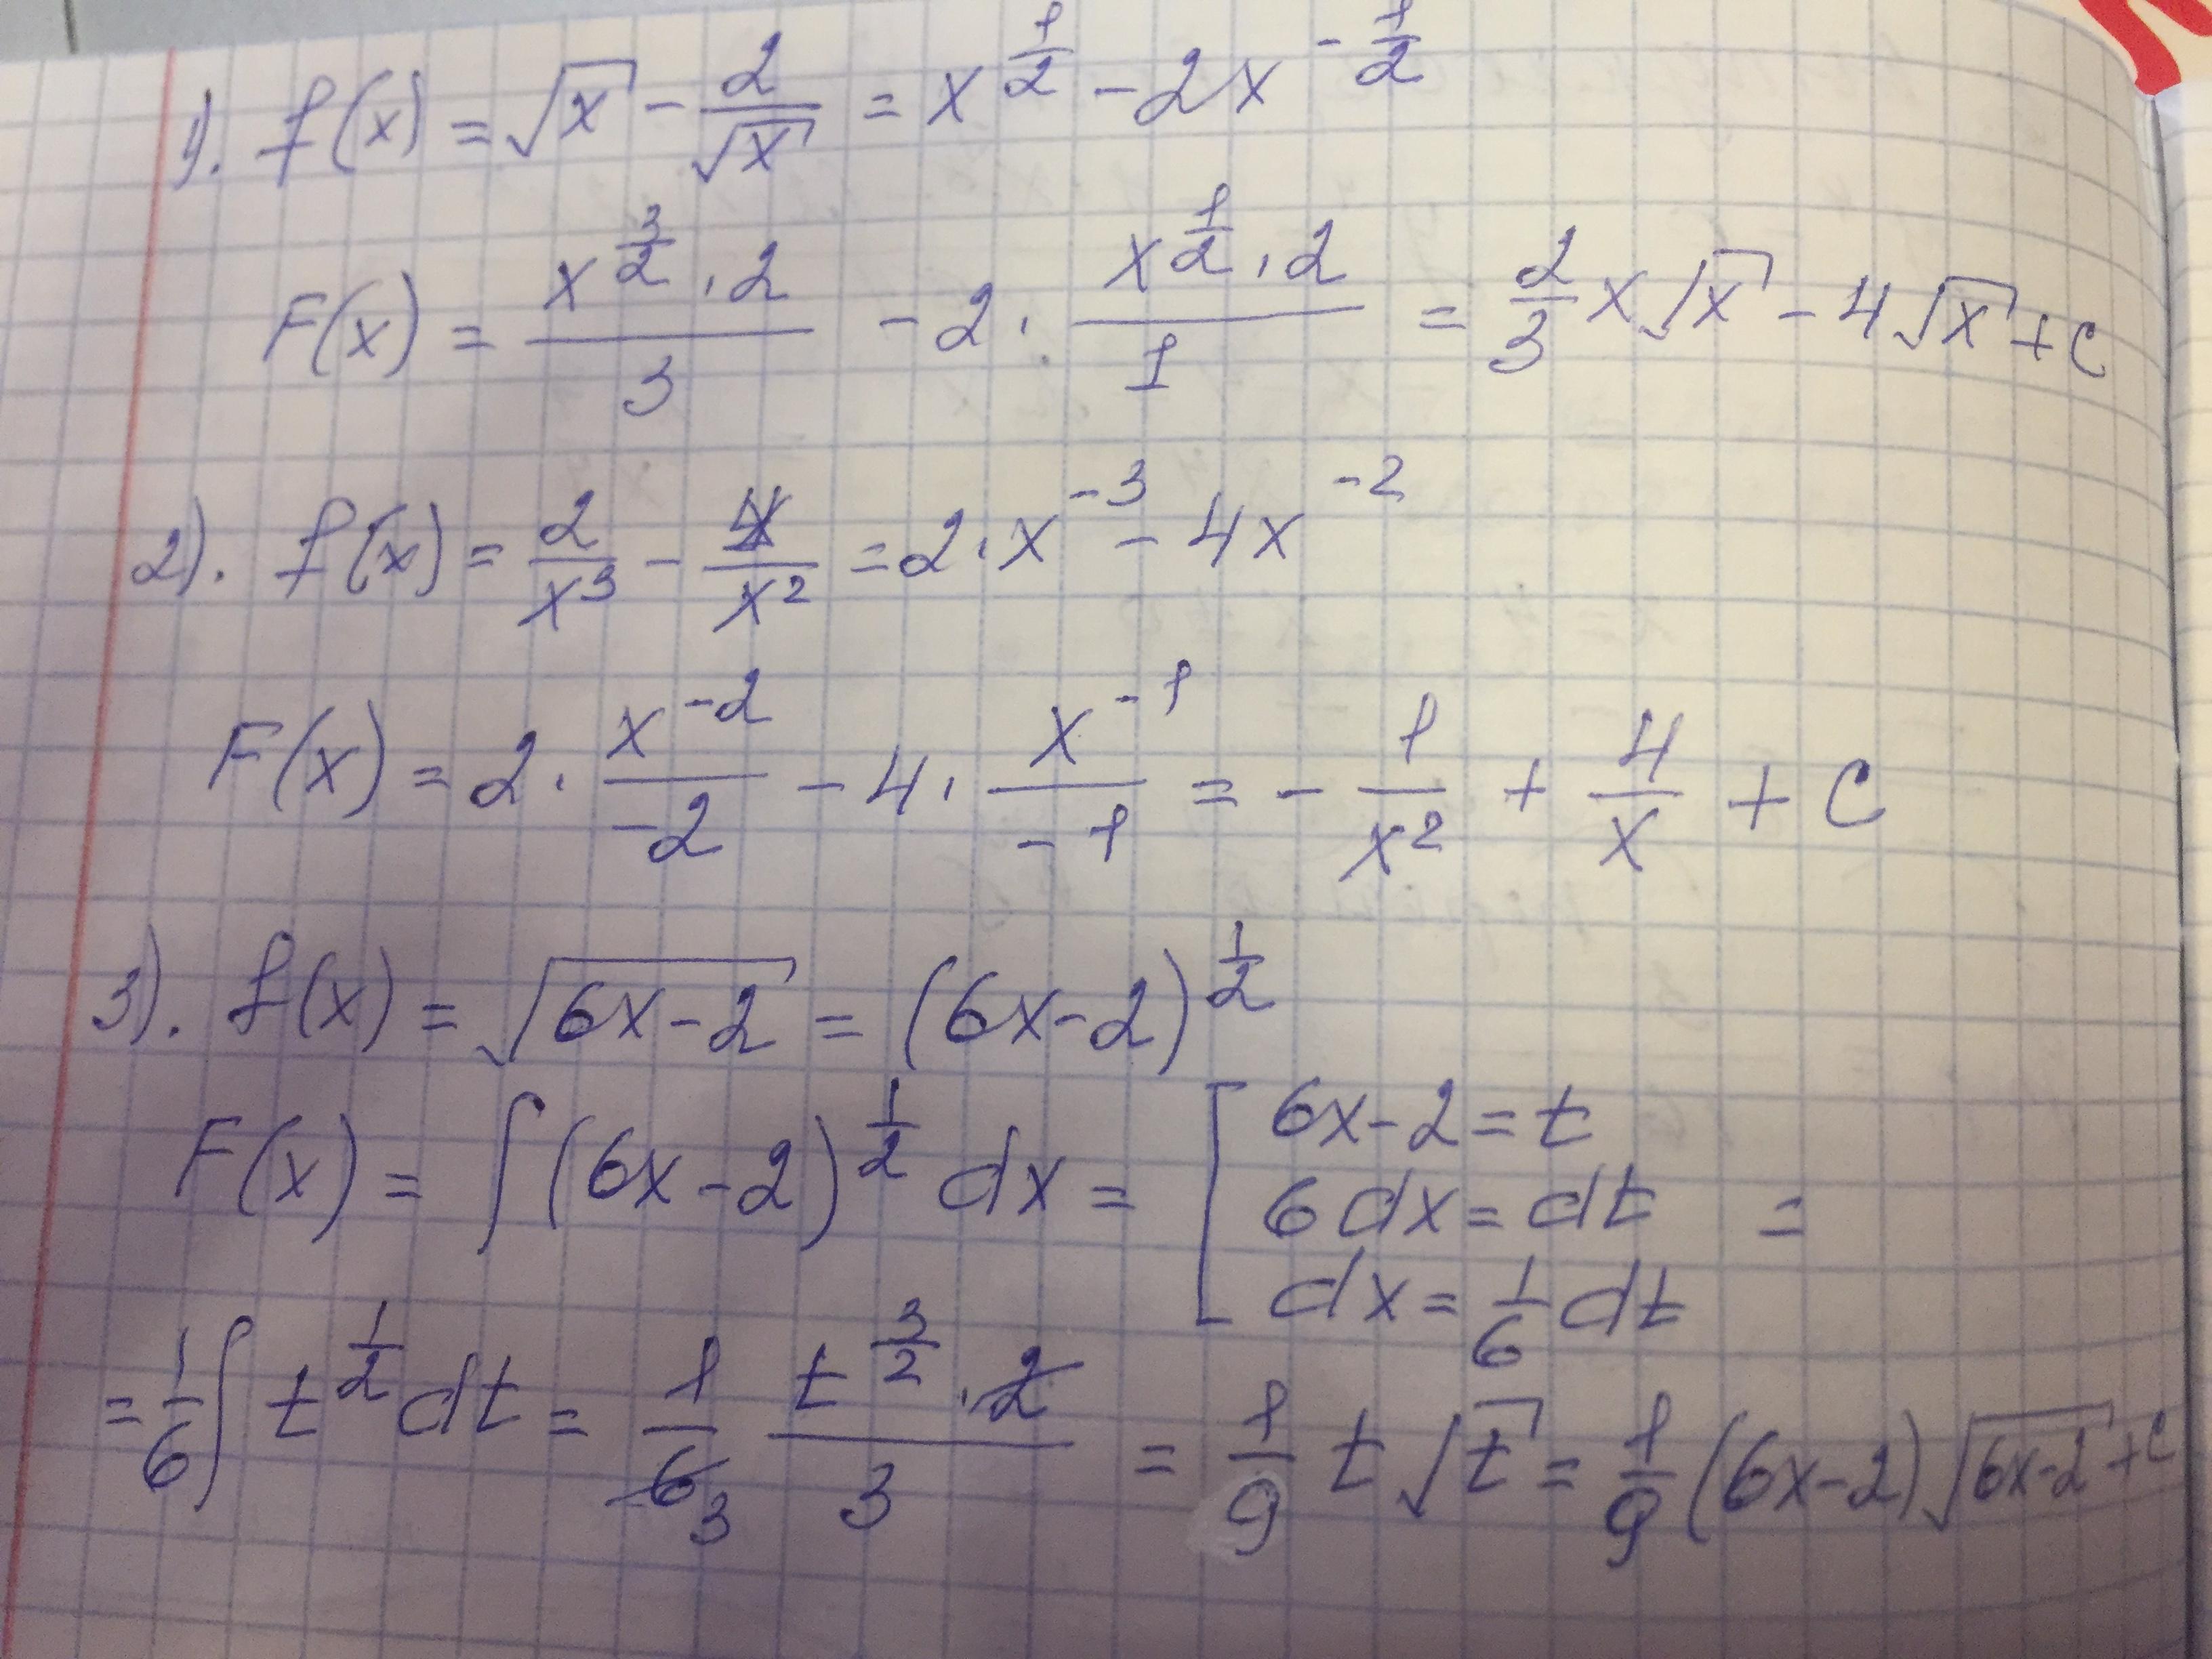 1). f(x) = √x - 2/√x = x^(1/2) - 2x^(-1/2)
F(x) = (x^(3/2) · 2)/3 - 2 · (x^(1/2) · 2)/1 = 2/3 x√x - 4√x + C
2). f(x) = 2/x³ - 4/x² = 2 · x^(-3) - 4x^(-2)
F(x) = 2 · x^(-2)/(-2) - 4 · x^(-1)/(-1) = - 1/x² + 4/x + C
3). f(x) = √(6x-2) = (6x-2)^(1/2)
F(x) = ∫(6x-2)^(1/2) dx = [ 6x-2=t
6dx=dt =
dx=1/6 dt
= 1/6 ∫ t^(1/2) dt = 1/6 3 (t^(3/2) · 2)/3 = 1/9 t√t = 1/9 (6x-2)√(6x-2) + C